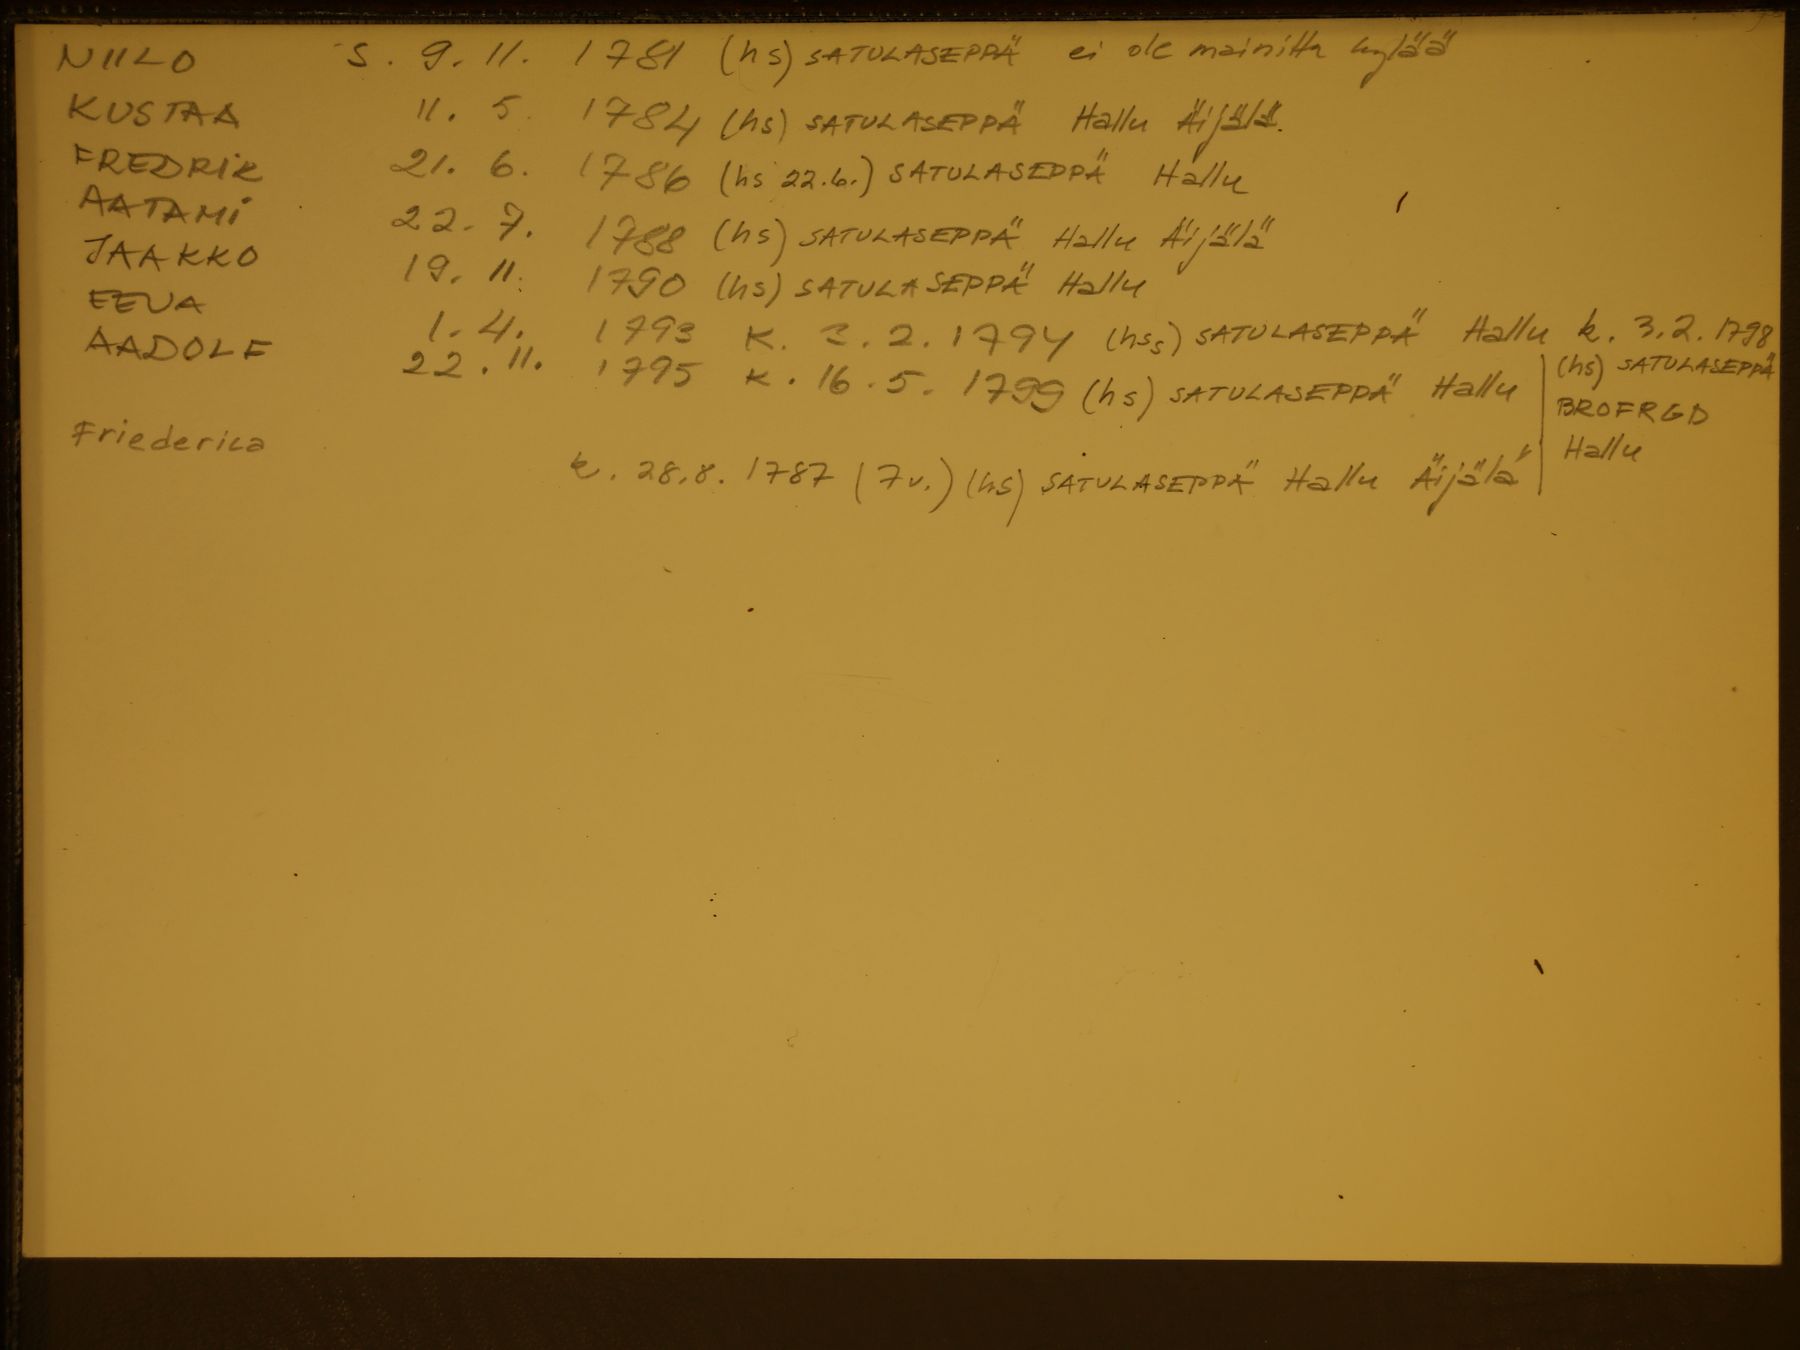 NIILO S. 9. 11. 1781 (hs) SATULASEPPÄ ei ole mainittu kylää
KUSTAA 11. 5. 1784 (hs) SATULASEPPÄ Hallu Äijälä.
FREDRIK 21. 6. 1786 (hs 22.6.) SATULASEPPÄ Hallu
AATAMI 22. 7. 1788 (hs) SATULASEPPÄ Hallu Äijälä
JAAKKO 19. 11. 1790 (hs) SATULASEPPÄ Hallu
EEVA 1. 4. 1793 K. 3. 2. 1794 (hss) SATULASEPPÄ Hallu k. 3.2. 1798
AADOLF 22. 11. 1795 K. 16. 5. 1799 (hs) SATULASEPPÄ Hallu
(hs) SATULASEPPÄ
BROFRGD
Hallu
Friederica k. 28.8. 1787 (7v.) (hs) SATULASEPPÄ Hallu Äijälä